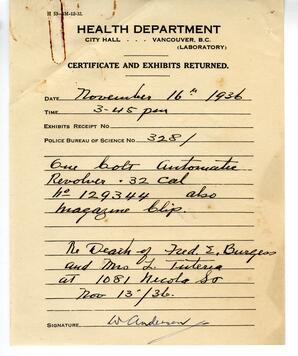 HEALTH DEPARTMENT
CITY HALL . . . VANCOUVER, B.C.
(LABORATORY)
CERTIFICATE AND EXHIBITS RETURNED.
DATE November 16th 1936
TIME 3-45 pm
EXHIBITS RECEIPT NO
POLICE BUREAU OF SCIENCE NO. 3281
One Colt Automatic
Revolver . 32 Cal
No 129344 also
Magazine Clip.
Re Death of Fred. E. Burgess
and Mrs L.
at 1081 Nicola St
Nov 13th/36.
SIGNATURE